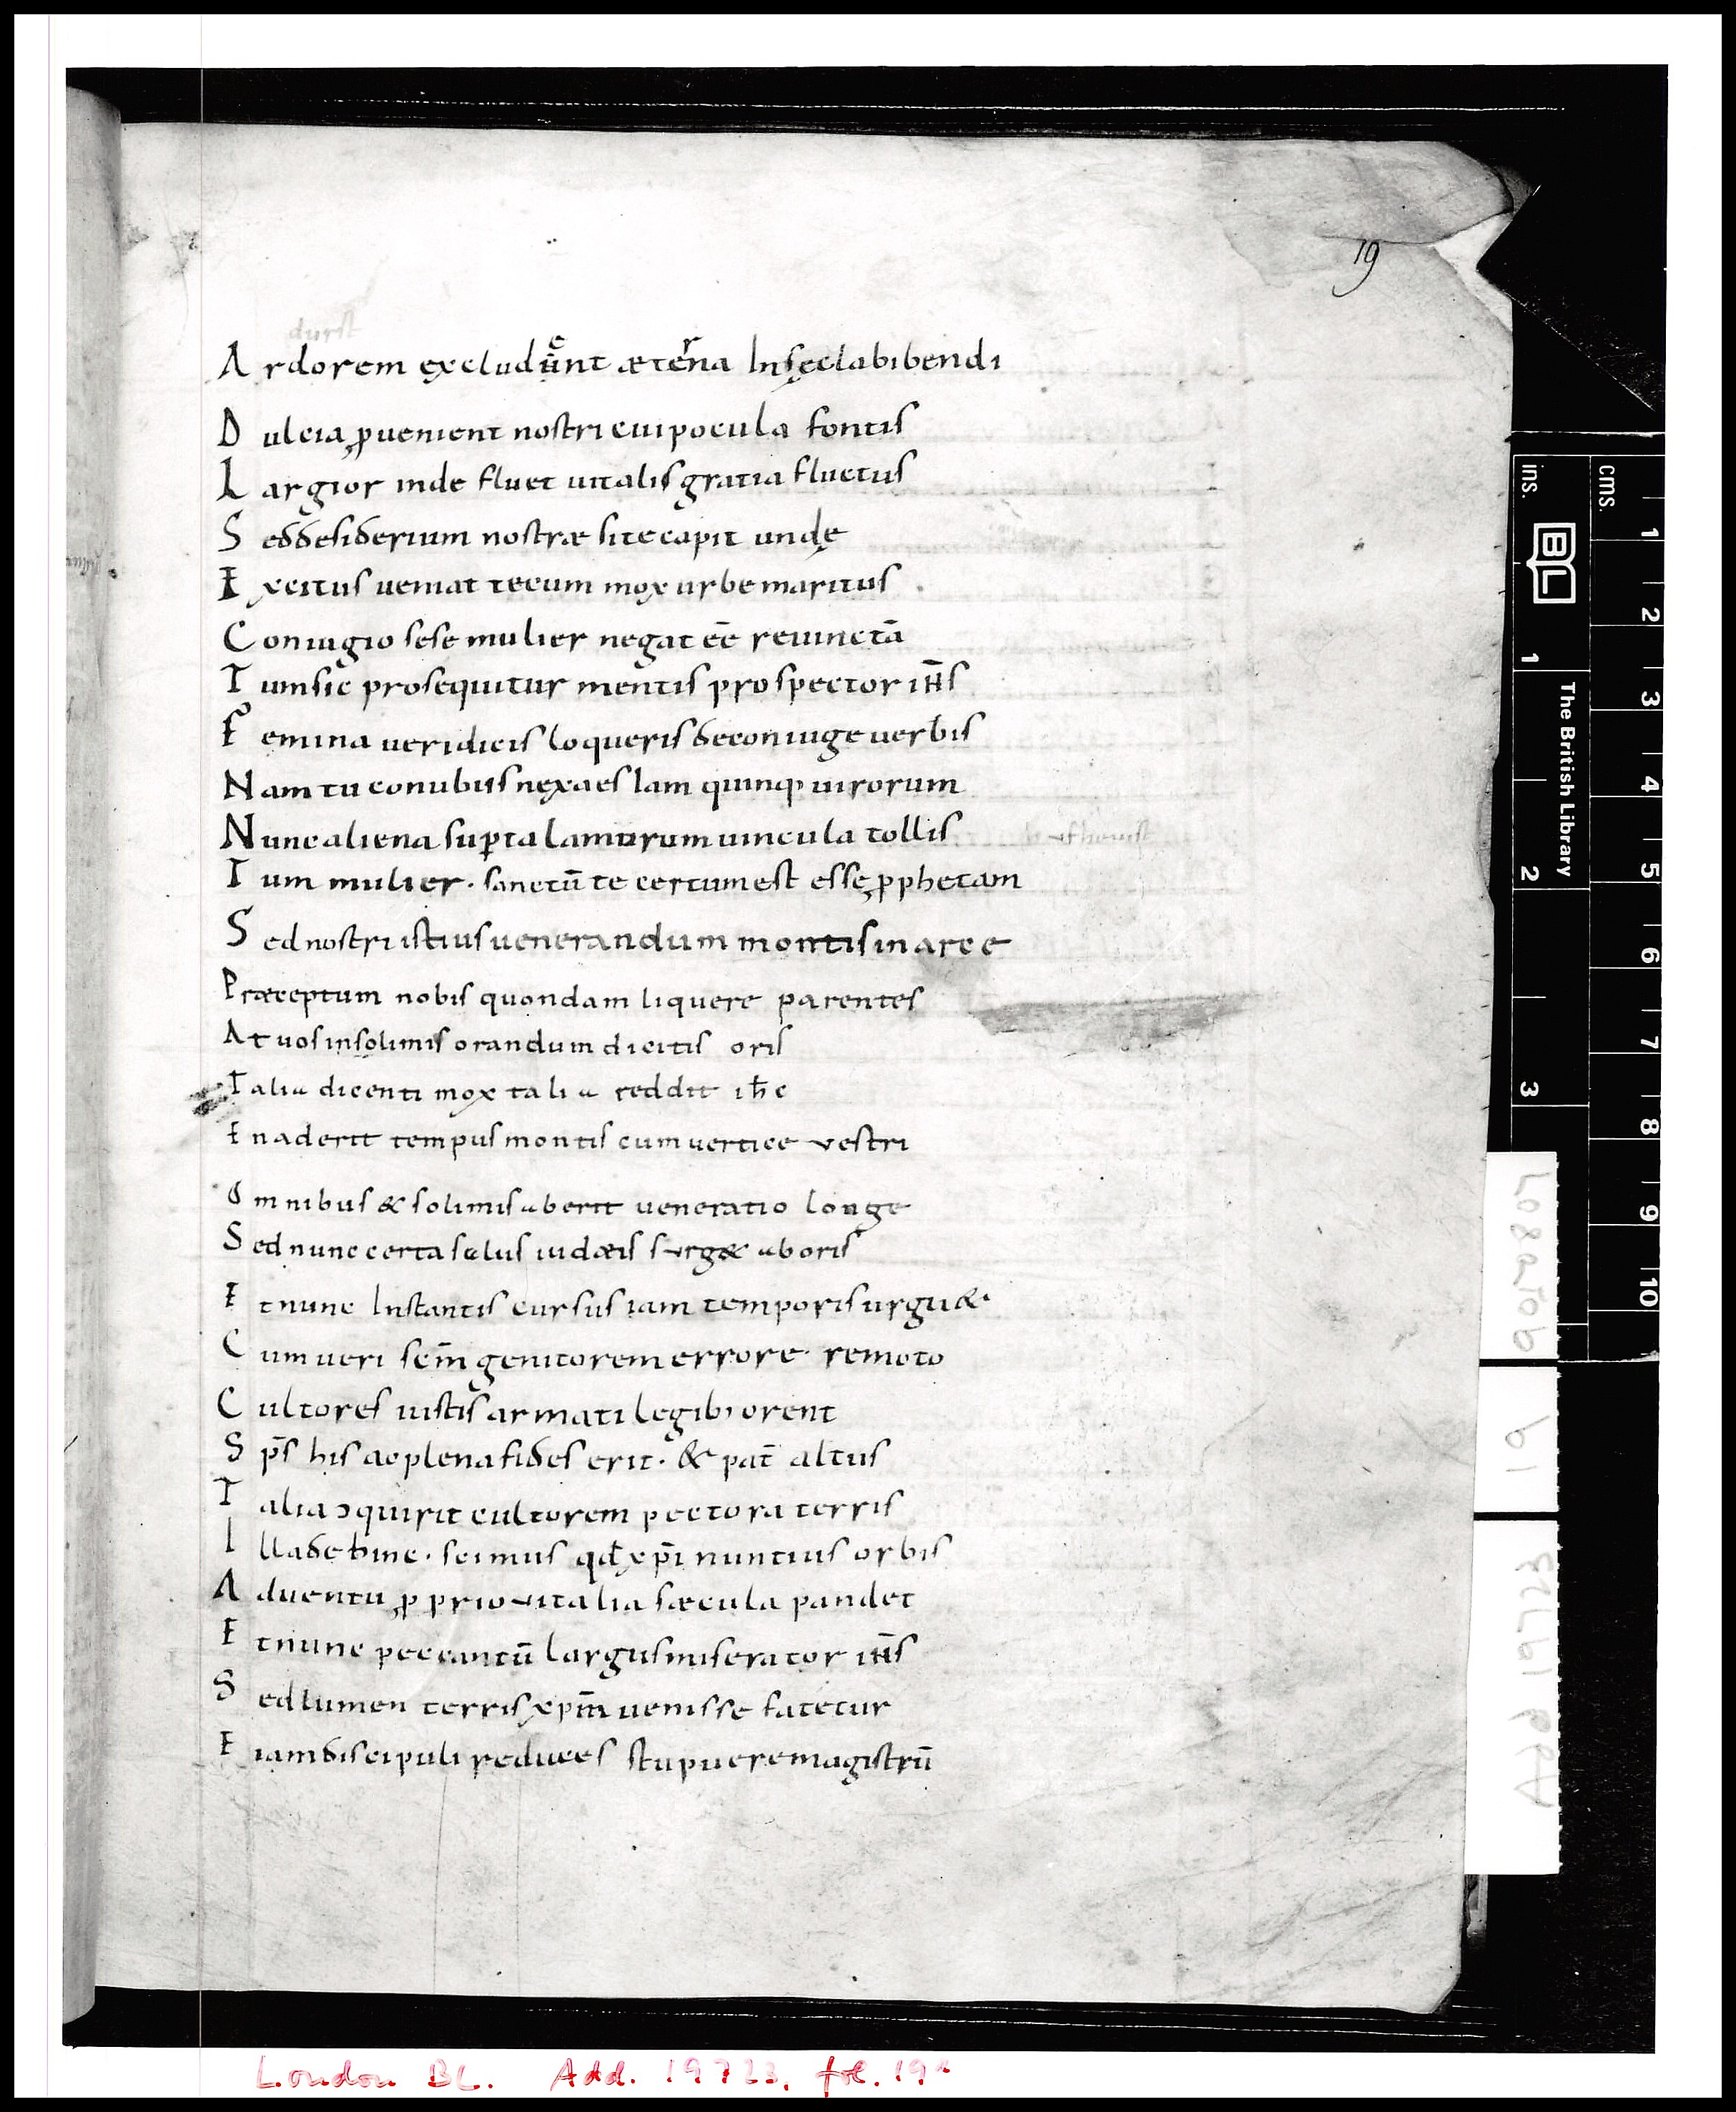 19
durst
Ardorem excludunt æterna Inseclabibendi
Dulcia ꝓuenient nostri cui pocula fontis
Largior inde fluet uitalis gratia fluctus
Sed desiderium nostræ si te capit undę
Excitus ueniat tecum mox urbe maritus
Coniugio sese mulier negat eē reiunctā
Tum sic prosequitur mentis prospector ihs̄
Femina ueridicis loqueris de coniuge uerbis
Nam tu conubiis nexa es Iam quinq; uirorum
Nunc aliena sup̱ talamorum uincula tollis
Tum mulier · sanctū te certum est esse ꝓphetam
Sed nostri istius uenerandum montis in arce
Præceptum nobis quondam liquere parentes
At uos in solimis orandum dicitis oris
Talia dicenti mox talia reddit ihc̄
En aderit tempus montis cum uertice vestri
Omnibus & solimis aberit ueneratio longe
Sed nunc certa salus iudæis surg& ab oris
Et nunc Instantis cursus iam temporis urgu&
Cum ueri scm̄ genitorem errore remoto
Cultores iustis armati legib; orent
Sp̄s his ac plena fides erit · & pat̄ altus
Talia ɔquirit cultorem pectora terris
Illa dehinc · scimus qđ xp̄i nuntius orbis
Aduentu ꝓprio vitalia sæcula pandet
Et nunc peccantū largus miserator ihs̄
Sed lumen terris xpm̄ uenisse fatetur
Eiam discipuli reduces stupuere magistrū
ins.
cms.
1
2
3
BL
The British Library
1
2
3
4
5
6
7
8
9
10
19
Add 19723
London BL. Add. 19723, fol. 19r